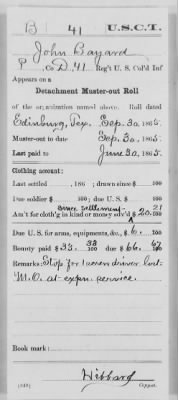 B 41 U.S.C.T.
John Bayard
P , Co. D, 41 Reg't U. S. Col'd Inf
Appears on a
Detachment Muster-out Roll
of the organization named above. Roll dated
Edinburg, Tex. Sep. 30, 1865.
Muster-out to date Sep. 30, 1865.
Last paid to June 30, 1865.
Clothing account:
Last settled , 186 ; drawn since $ 100
Due soldier $ 100; due U. S. $ 100
since settlement
Am't for cloth'g in kind or money adv'd $ 20. 21/100
Due U. S. for arms, equipments, &c., $ 6. 100
Bounty paid $ 33 33/100; due $ 66. 67/100
Remarks: Stop for 1 screw driver lost.
M.O. at expn. service.
Book mark:
Hibbard
(349) Copyist.